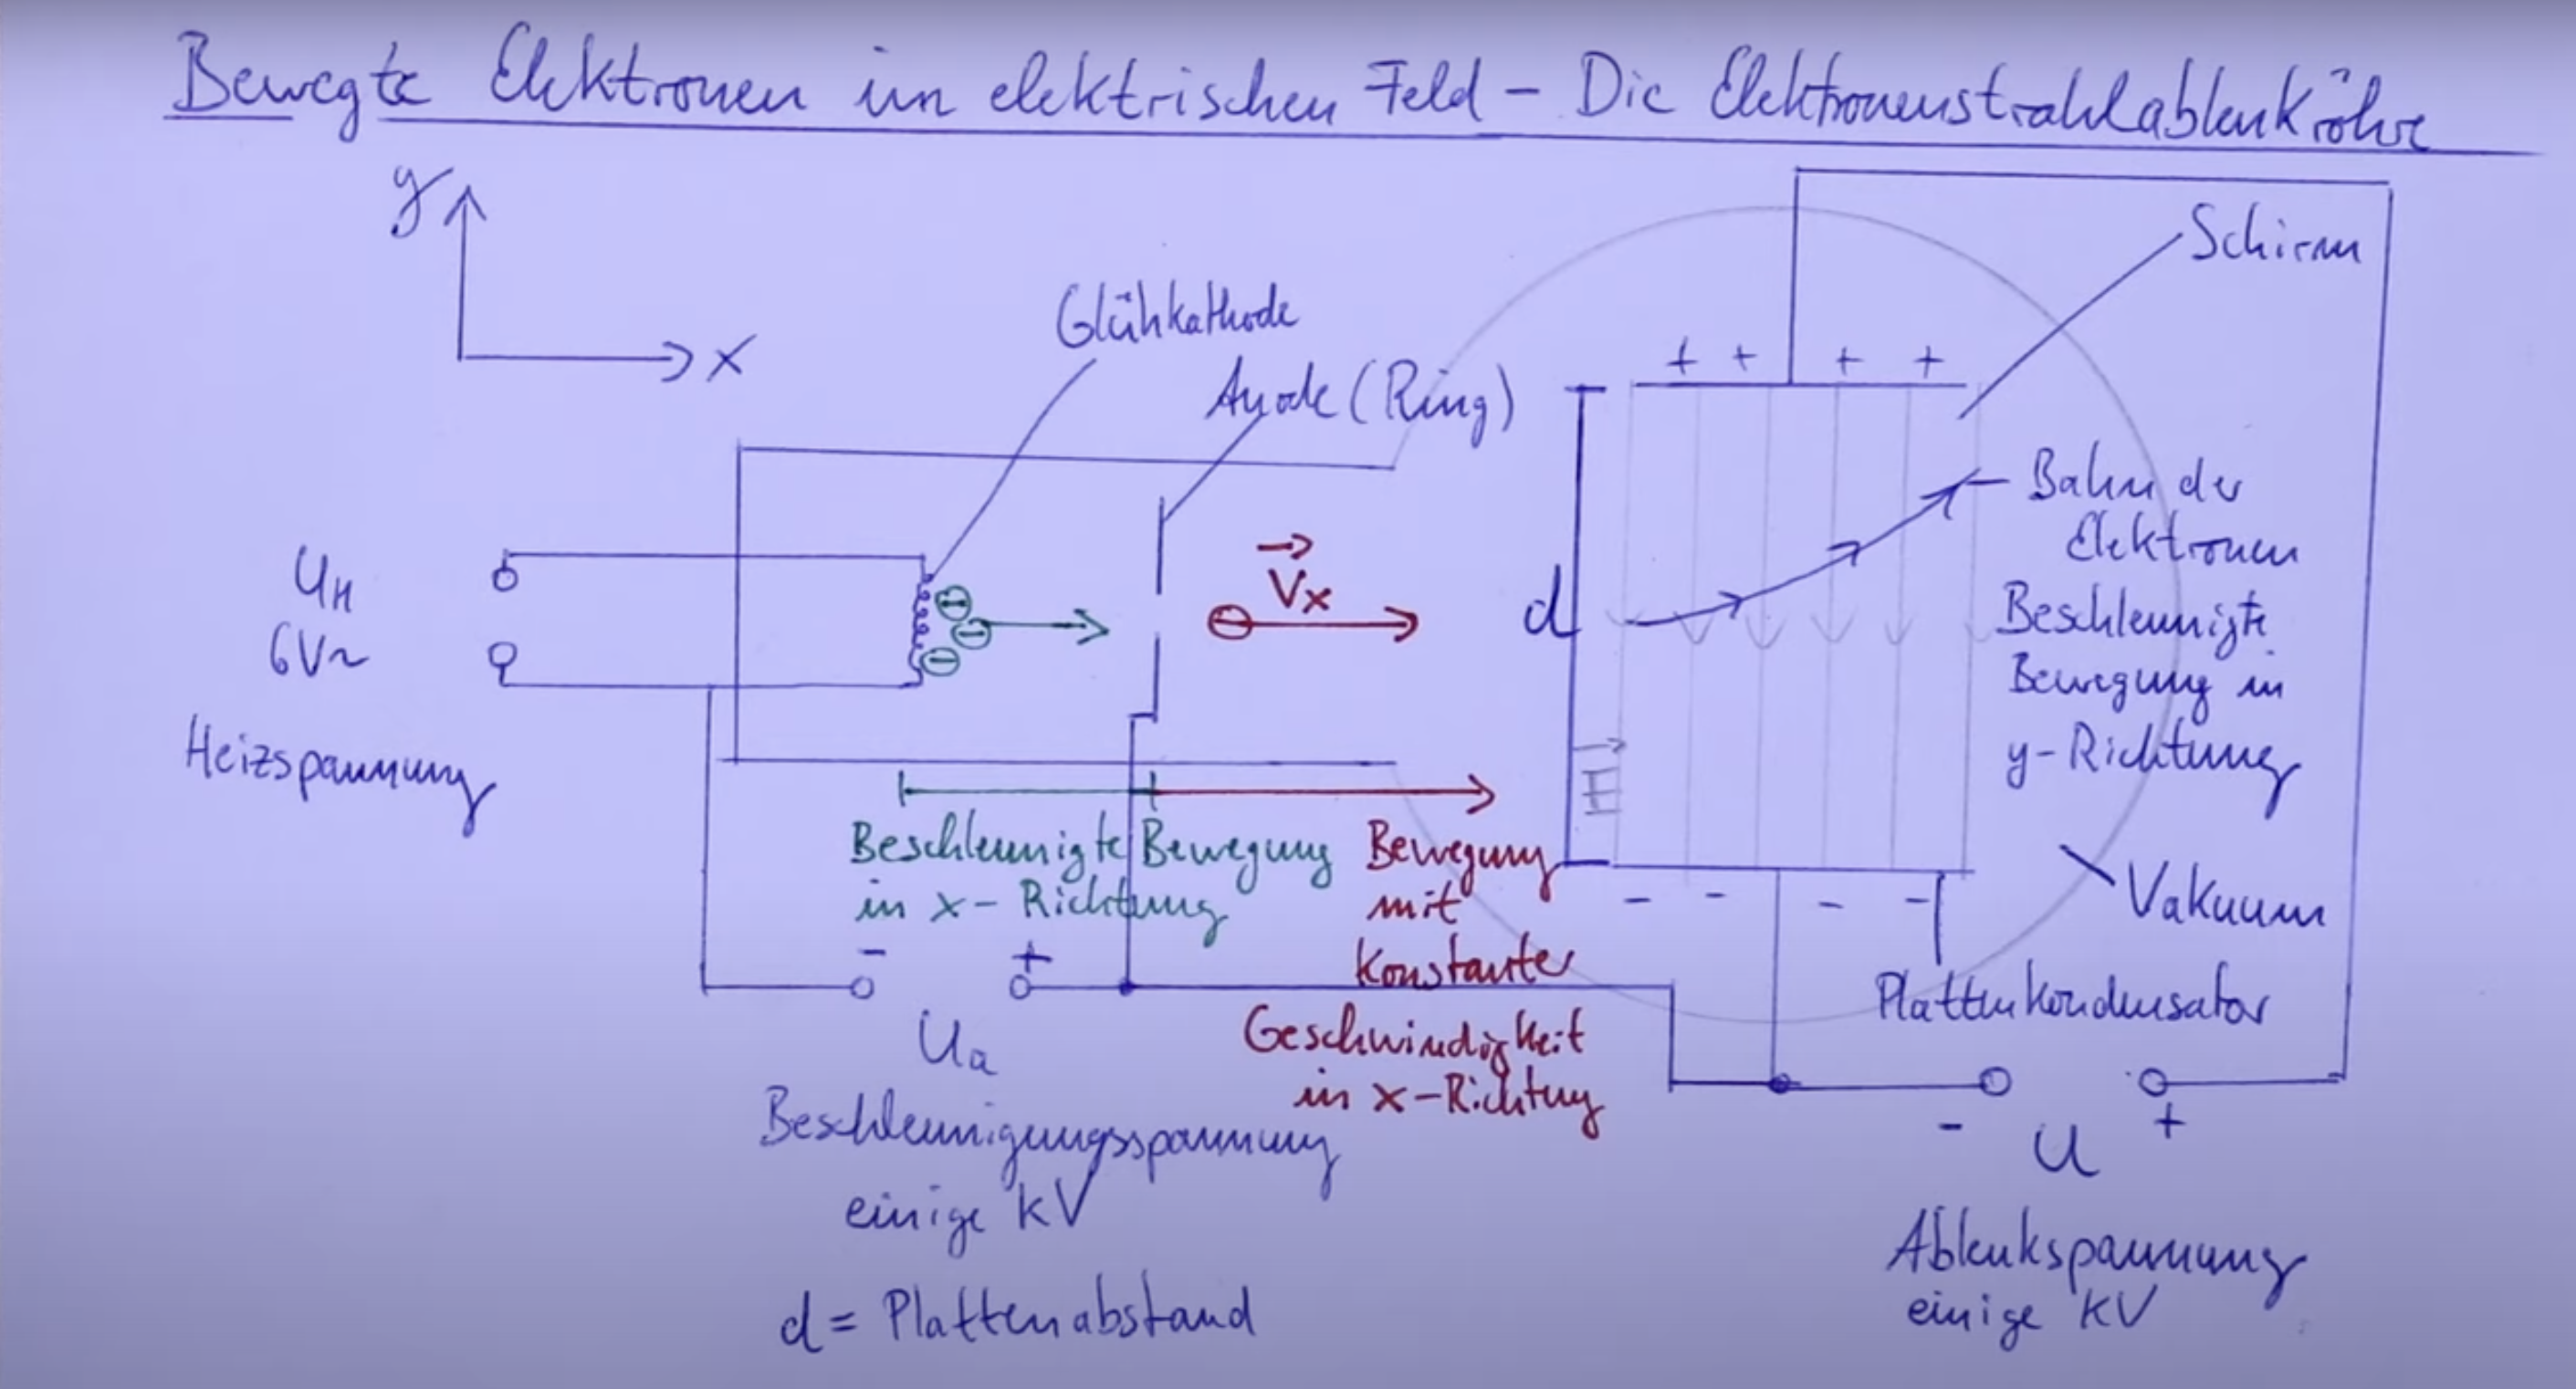 Bewegte Elektronen im elektrischen Feld - Die Elektronenstrahlablenkröhre
y
x
Glühkathode
Anode (Ring)
Schirm
+ + + +
Bahn der
Elektronen
Beschleunigte
Bewegung in
y-Richtung
U_H
6V~
Heizspannung
V_x
d
E
Beschleunigte Bewegung
in x-Richtung
Bewegung
mit
Konstanter
Geschwindigkeit
in x-Richtung
- - - -
Vakuum
Plattenkondensator
- +
U_a
Beschleunigungsspannung
einige kV
- +
U
Ablenkspannung
einige KV
d = Plattenabstand